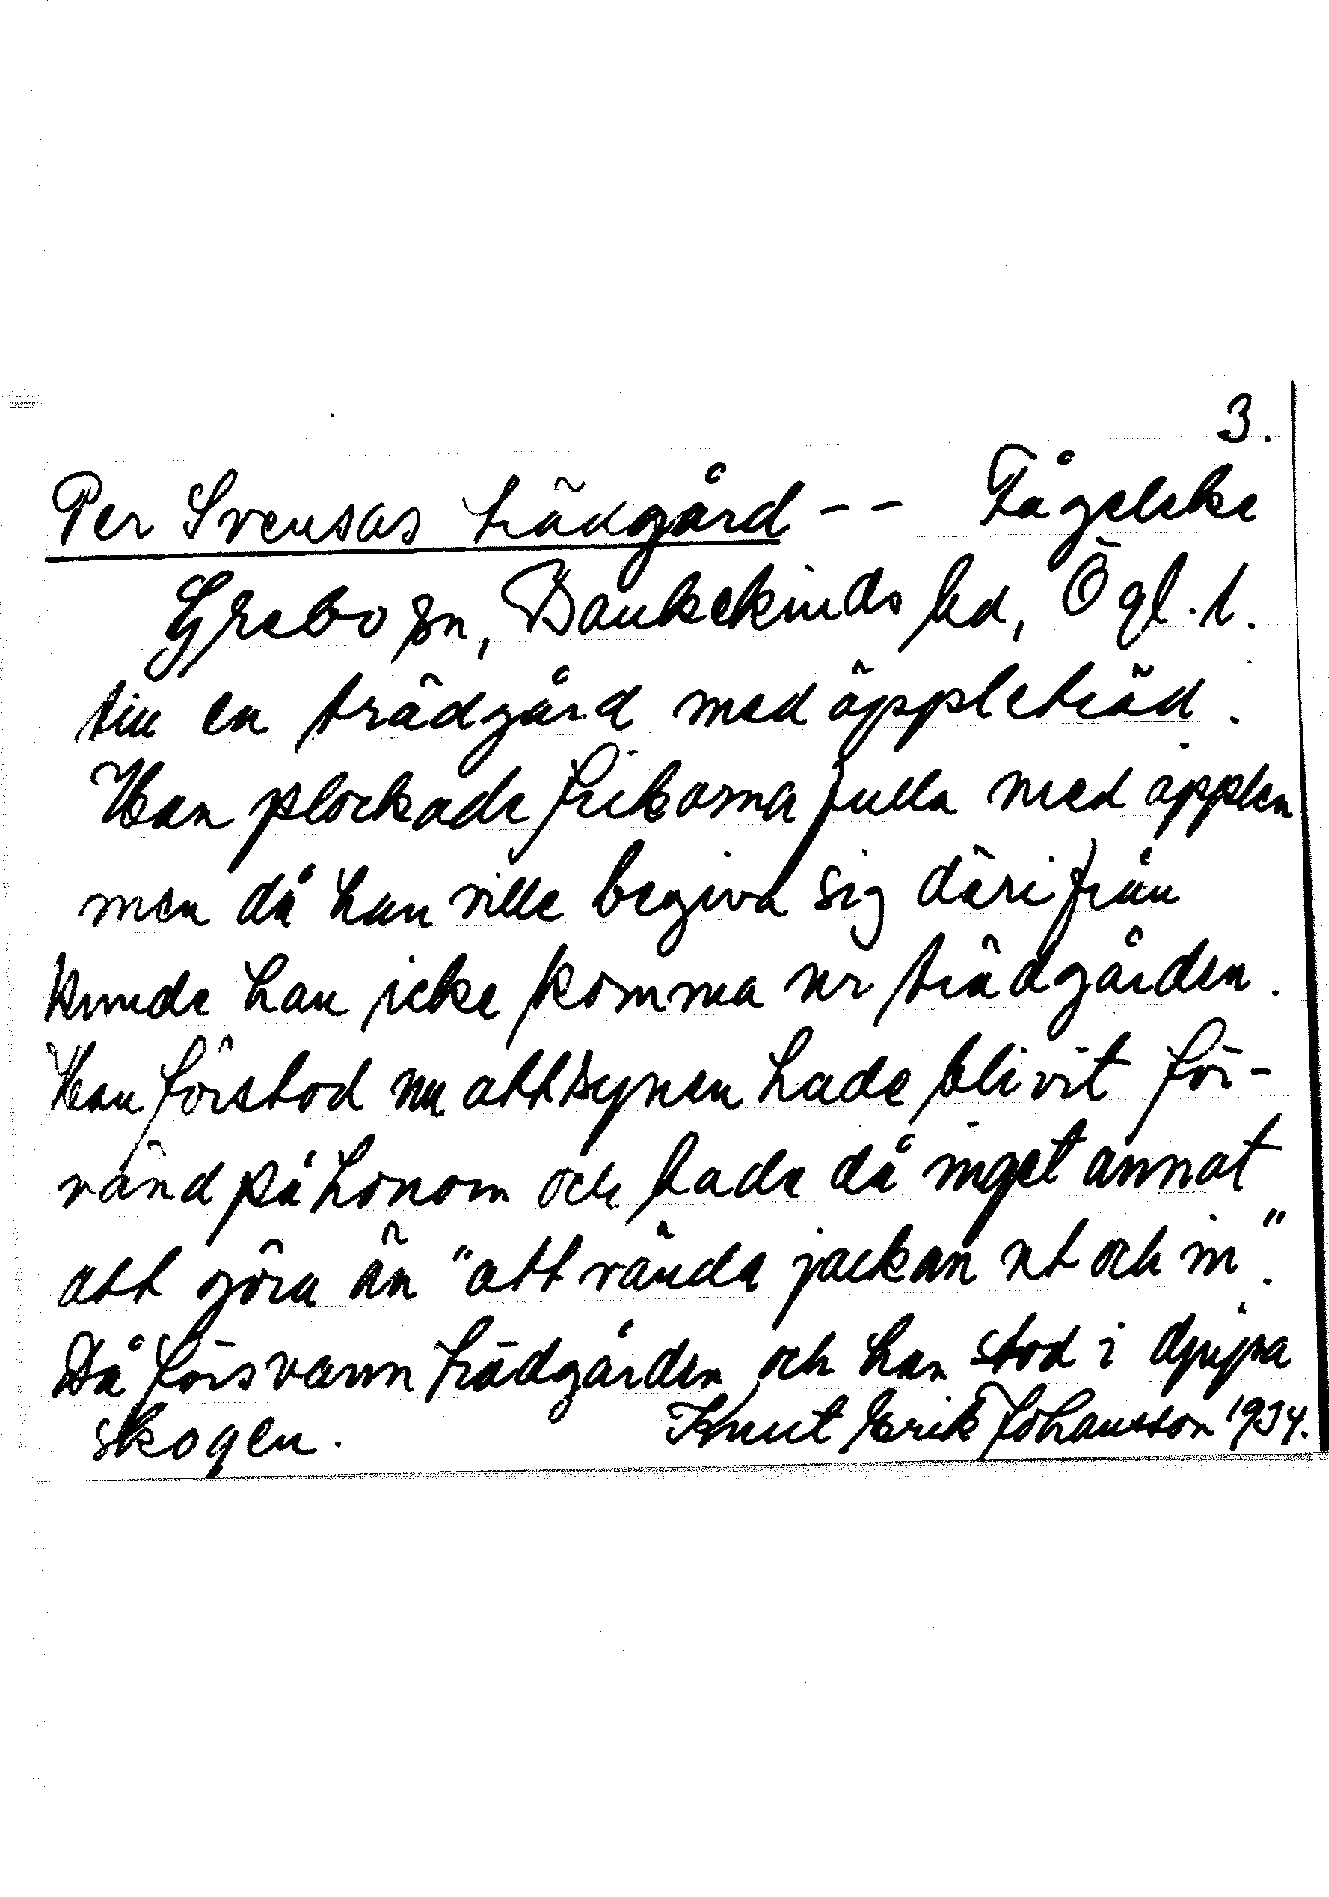 3.
Per Svensas trädgård -- Fågeleke
Grebo sn, Bankekinds hd, Ögl. l.
till en trädgård med äppleträd.
Han plockade fickorna fulla med äpplen
men då han ville begiva sig därifrån
kunde han icke komma ur trädgården.
Han förstod nu att synen hade blivit för-
vänd på honom och hade då inget annat
att göra än "att vända jackan ut och in".
Då försvann trädgården och han stod i djupa
skogen. Knut Erik Johansson 1934.